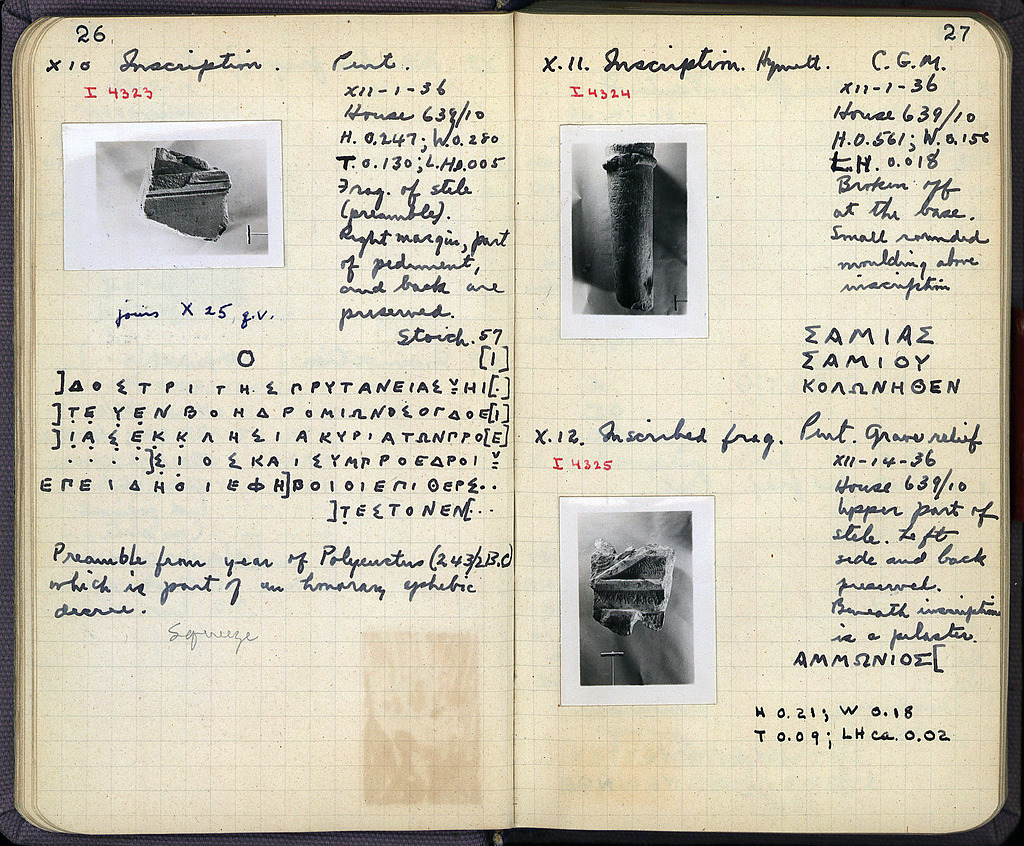 26
X 10 Inscription. Pent.
I 4323
XII-1-36
House 639/10
H. 0.247; W. 0.280
T. 0.130; L.H. 0.005
Frag. of stele
(preamble).
Right margin, part
of pediment,
and back are
preserved.
joins X 25, q.v.
Stoich. 57
Ο [Ι]
]ΔΟΣΤΡΙΤΗΣΠΡΥΤΑΝΕΙΑΣΥΗΙ[.]
]ΤΕΥΕΝΒΟΗΔΡΟΜΙΩΝΟΣΟΓΔΟΕ[Ι]
]ΙΑΣΕΚΚΛΗΣΙΑΚΥΡΙΑΤΩΝΠΡΟ[Ε]
. . . .]ΣΙΟΣΚΑΙΣΥΜΠΡΟΕΔΡΟΙ
ΕΠΕΙΔΗΟΙΕΦΗ]ΒΟΙΟΙΕΠΙΘΕΡΣ..
]ΤΕΣΤΟΝΕΝ[...
Preamble from year of Polyeuctus (243/2 B.C.)
which is part of an honorary ephebic
decree.
Squeeze
27
X.11. Inscription. Hymett. C.G.M.
I 4324
XII-1-36
House 639/10
H. 0.561; W. 0.156
L.H. 0.018
Broken off
at the base.
Small rounded
moulding above
inscription
ΣΑΜΙΑΣ
ΣΑΜΙΟΥ
ΚΟΛΩΝΗΘΕΝ
X.12. Inscribed frag. Pent. Grave relief
I 4325
XII-14-36
House 639/10
Upper part of
stele. Left
side and back
preserved.
Beneath inscription
is a pilaster.
ΑΜΜΩΝΙΟΣ[
H 0.21; W 0.18
T 0.09; LH ca. 0.02